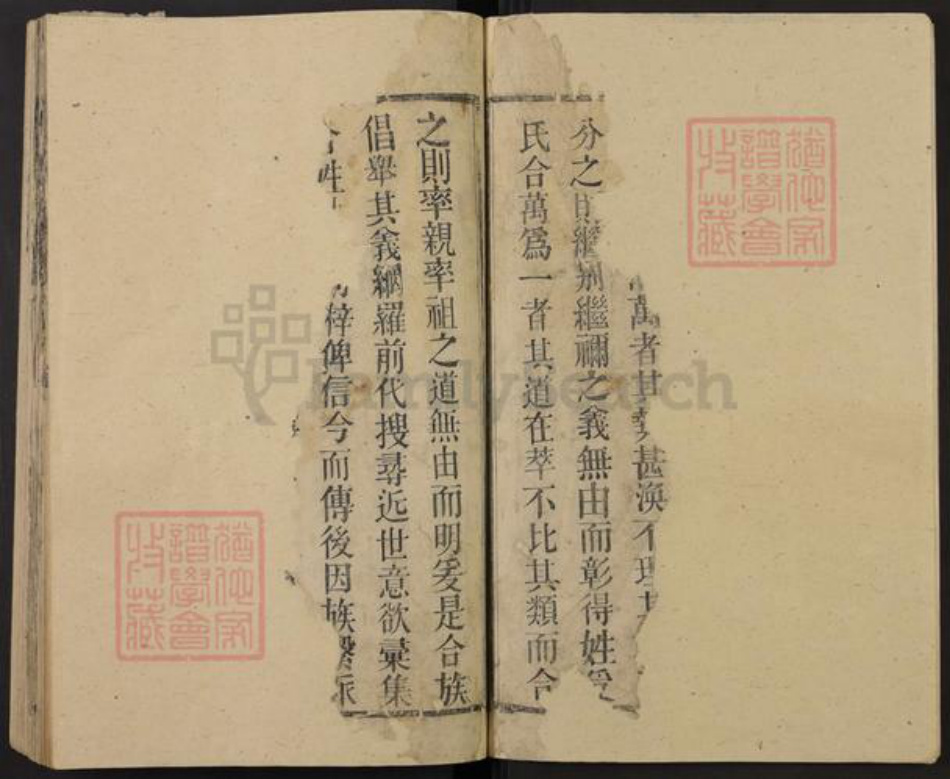 萬者其勢甚渙不理其
分之則繼別繼禰之義無由而彰得姓受
氏合萬為一者其道在萃不比其類而合
之則率親率祖之道無由而明爰是合族
倡舉其義網羅前代搜尋近世意欲彙集
梓俾信今而傳後因族繁派
譜學會
收藏
譜學會
收藏
FamilySearch